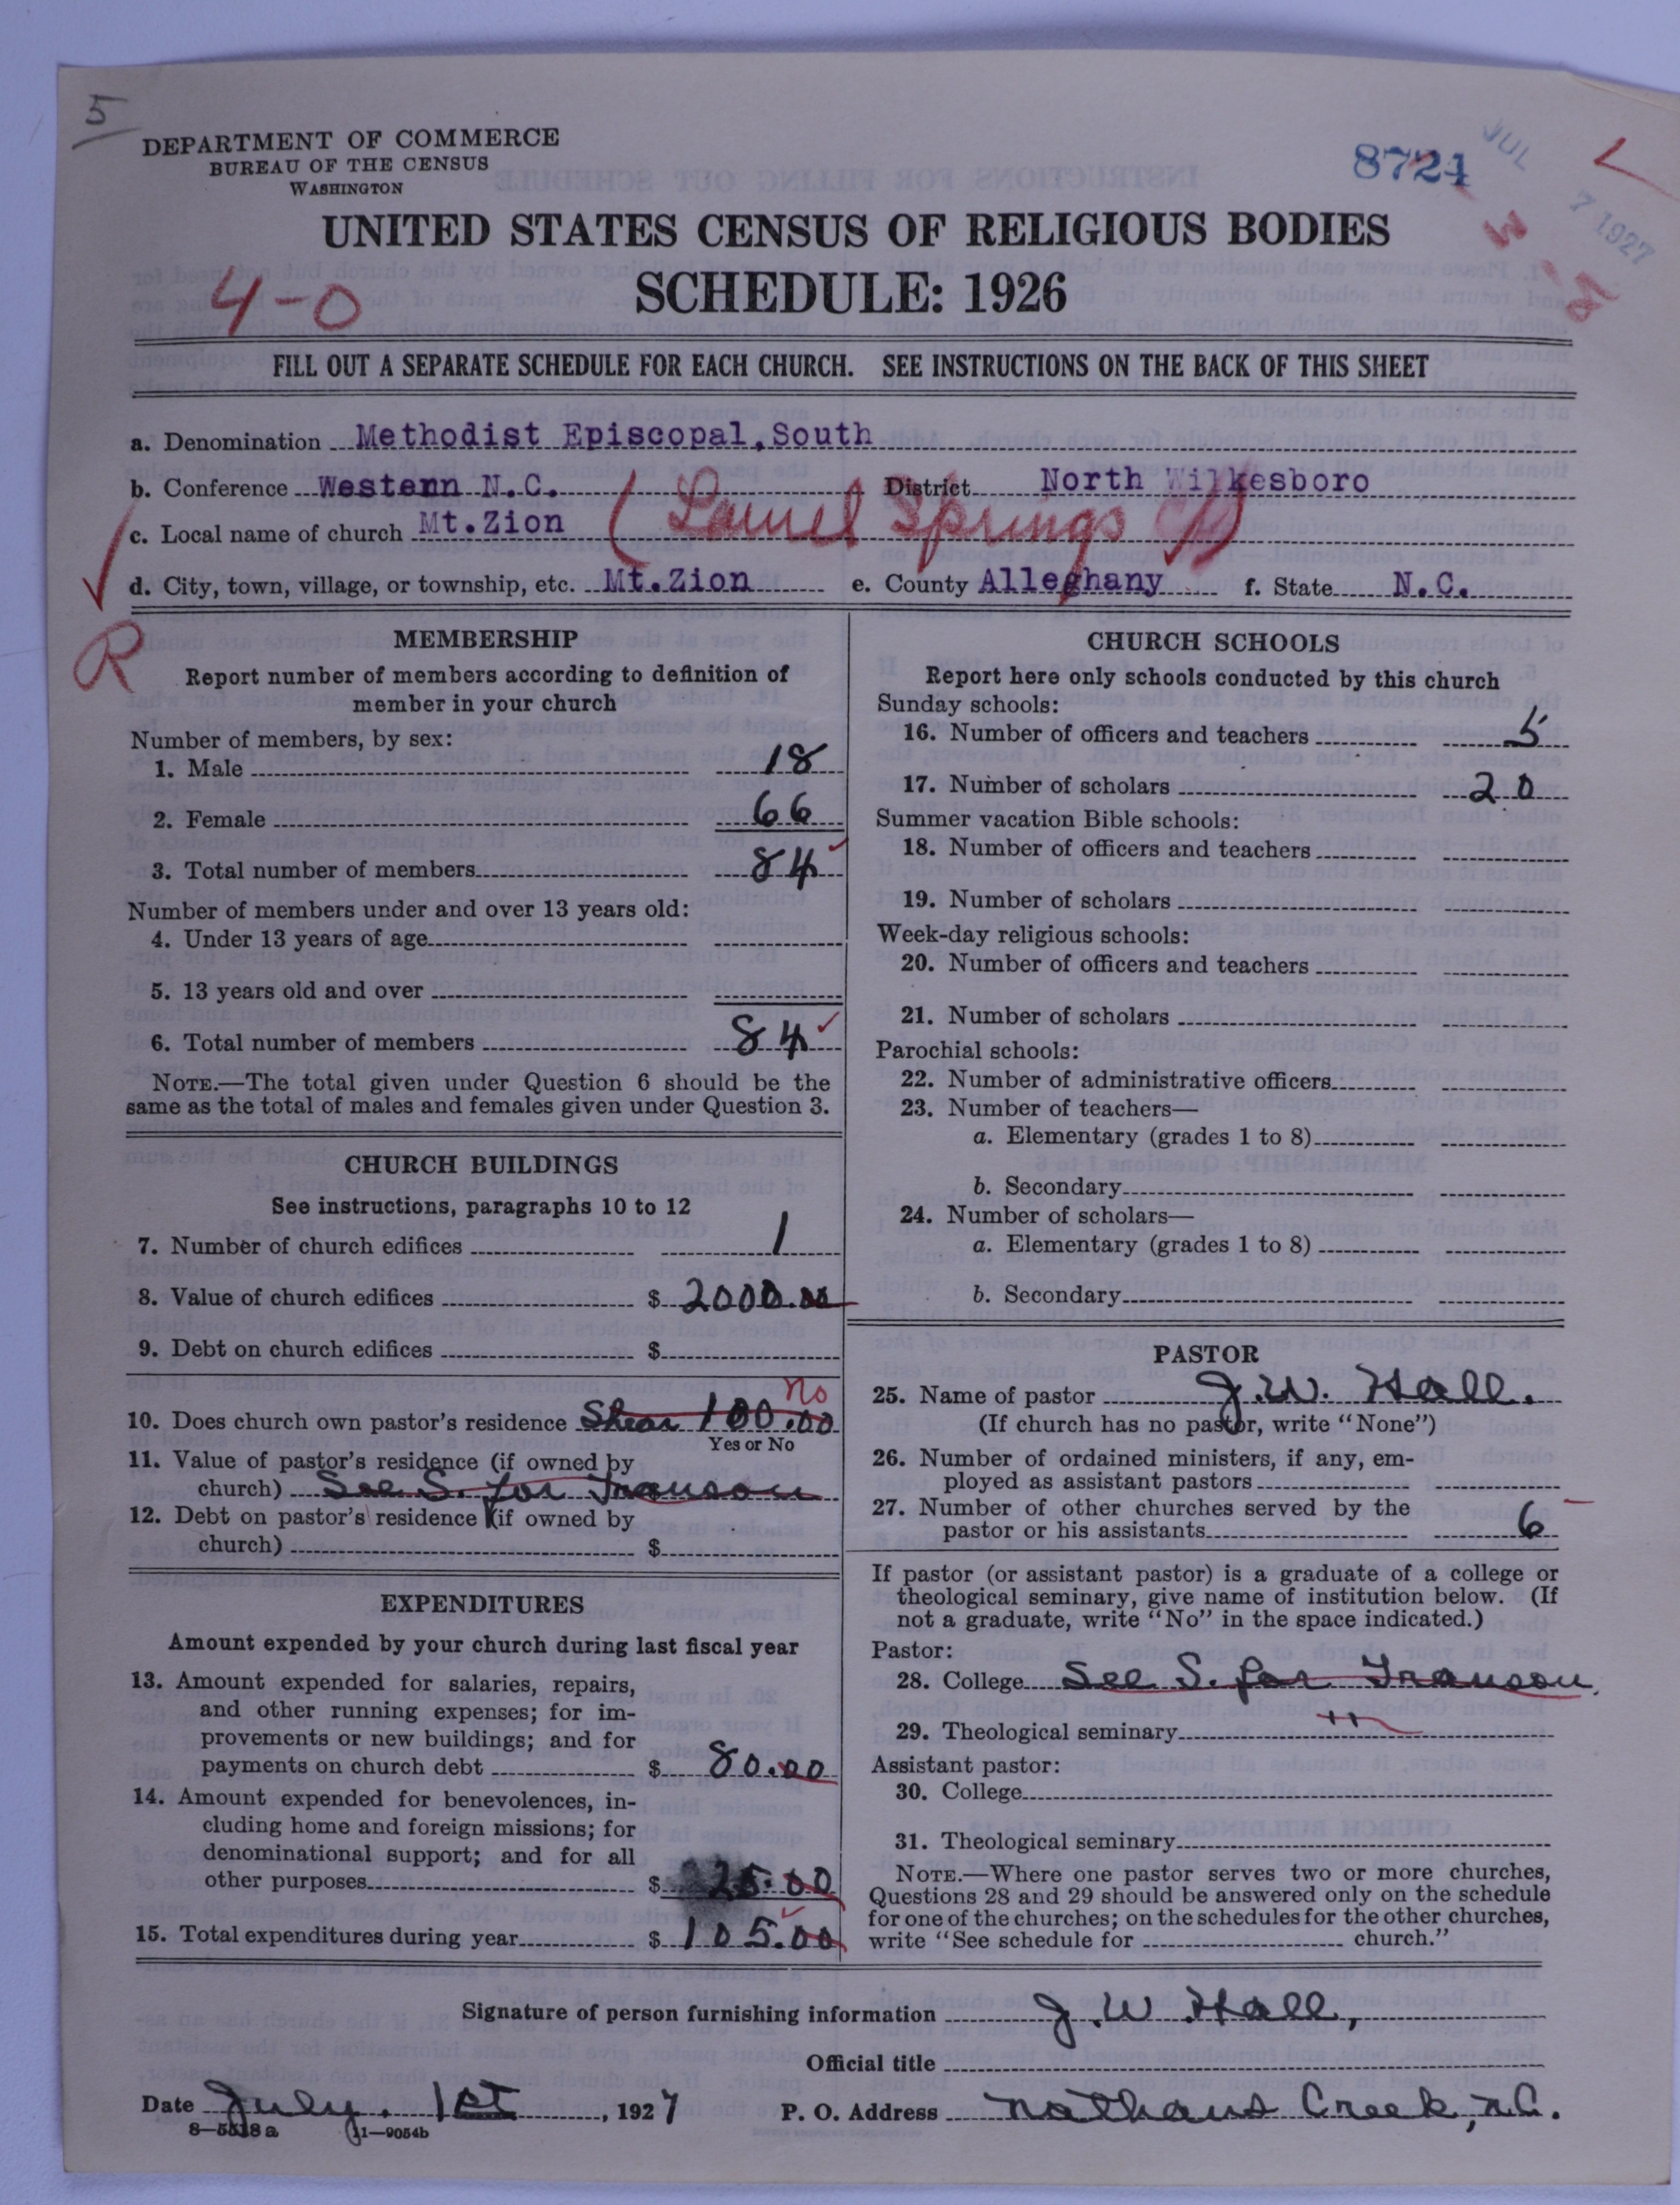 5
DEPARTMENT OF COMMERCE
BUREAU OF THE CENSUS
WASHINGTON
8724
JUL 7 1927
UNITED STATES CENSUS OF RELIGIOUS BODIES
4-0
SCHEDULE: 1926
FILL OUT A SEPARATE SCHEDULE FOR EACH CHURCH. SEE INSTRUCTIONS ON THE BACK OF THIS SHEET
a. Denomination Methodist Episcopal, South
b. Conference Western N.C. District North Wilkesboro
c. Local name of church Mt.Zion (Laurel Springs
d. City, town, village, or township, etc. Mt.Zion e. County Alleghany f. State N.C.
R
MEMBERSHIP
Report number of members according to definition of
member in your church
Number of members, by sex:
1. Male 18
2. Female 66
3. Total number of members 84
Number of members under and over 13 years old:
4. Under 13 years of age
5. 13 years old and over
6. Total number of members 84
NOTE.—The total given under Question 6 should be the
same as the total of males and females given under Question 3.
CHURCH BUILDINGS
See instructions, paragraphs 10 to 12
7. Number of church edifices 1
8. Value of church edifices $ 2000.00
9. Debt on church edifices $
no
10. Does church own pastor's residence Shear 100.00
Yes or No
11. Value of pastor's residence (if owned by
church) See S. for Transou
12. Debt on pastor's residence (if owned by
church) $
EXPENDITURES
Amount expended by your church during last fiscal year
13. Amount expended for salaries, repairs,
and other running expenses; for im-
provements or new buildings; and for
payments on church debt $ 80.00
14. Amount expended for benevolences, in-
cluding home and foreign missions; for
denominational support; and for all
other purposes $ 25.00
15. Total expenditures during year $ 105.00
CHURCH SCHOOLS
Report here only schools conducted by this church
Sunday schools:
16. Number of officers and teachers 5
17. Number of scholars 20
Summer vacation Bible schools:
18. Number of officers and teachers
19. Number of scholars
Week-day religious schools:
20. Number of officers and teachers
21. Number of scholars
Parochial schools:
22. Number of administrative officers
23. Number of teachers—
a. Elementary (grades 1 to 8)
b. Secondary
24. Number of scholars—
a. Elementary (grades 1 to 8)
b. Secondary
PASTOR
25. Name of pastor J.W. Hall.
(If church has no pastor, write "None")
26. Number of ordained ministers, if any, em-
ployed as assistant pastors
27. Number of other churches served by the
pastor or his assistants 6
If pastor (or assistant pastor) is a graduate of a college or
theological seminary, give name of institution below. (If
not a graduate, write "No" in the space indicated.)
Pastor:
28. College See S. for Transou.
29. Theological seminary "
Assistant pastor:
30. College
31. Theological seminary
NOTE.—Where one pastor serves two or more churches,
Questions 28 and 29 should be answered only on the schedule
for one of the churches; on the schedules for the other churches,
write "See schedule for church."
Signature of person furnishing information J.W. Hall,
Official title
Date July. 1st, 1927 P. O. Address Nathans Creek, N.C.
8—5518a 11—9054b